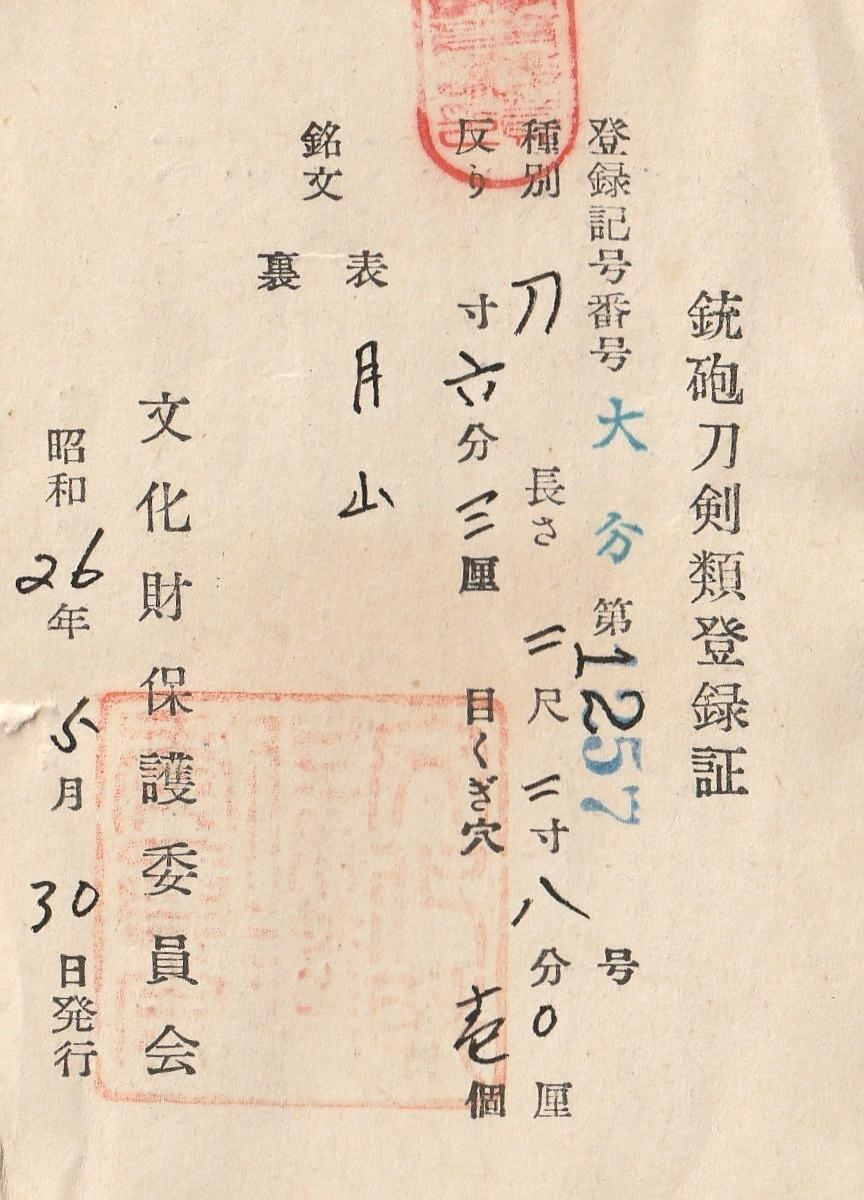 銃砲刀剣類登録証
登録記号番号 大分 第1257号
種別 刀 長さ 二尺 二寸 八分 0厘
反り 寸 六分 三厘 目くぎ穴 壱個
銘文
表 月山
裏
文化財保護委員会
昭和26年5月30日発行